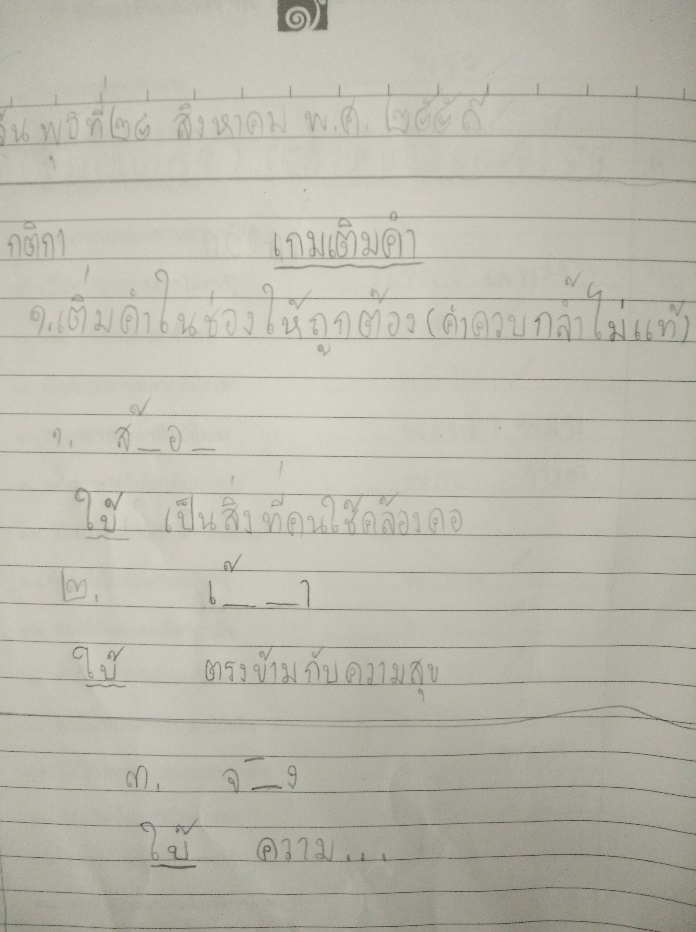 ๑
วันพุธที่๒๘ สิงหาคม พ.ศ. ๒๕๕๖
กติกา เกมเติมคำ
๑.เติ่มคำในช่องให้ถูกต้อง(คำควบกล้ำไม่แท้)
๑. ส้_อ_
ใบ้ เป็นสิ่งที่คนใช้คล้องคอ
๒. เ_้ _า
ใบ้ ตรงข้ามกับความสุข
๓. จ_ิง
ใบ้ ความ...